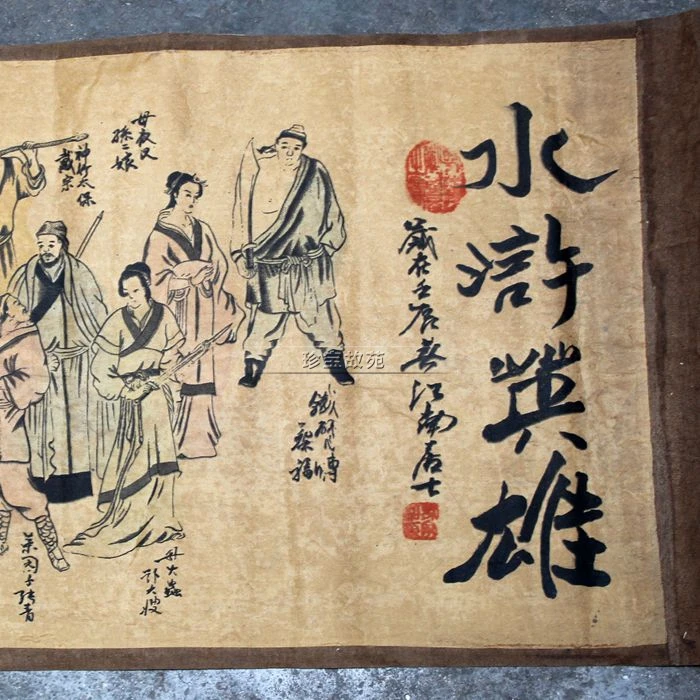 水滸英雄
歲在壬辰春江南居士
鐵臂膊
蔡福
母夜叉
孫二娘
神行太保
戴宗
母大蟲
顾大嫂
菜园子张青
珍宝故苑